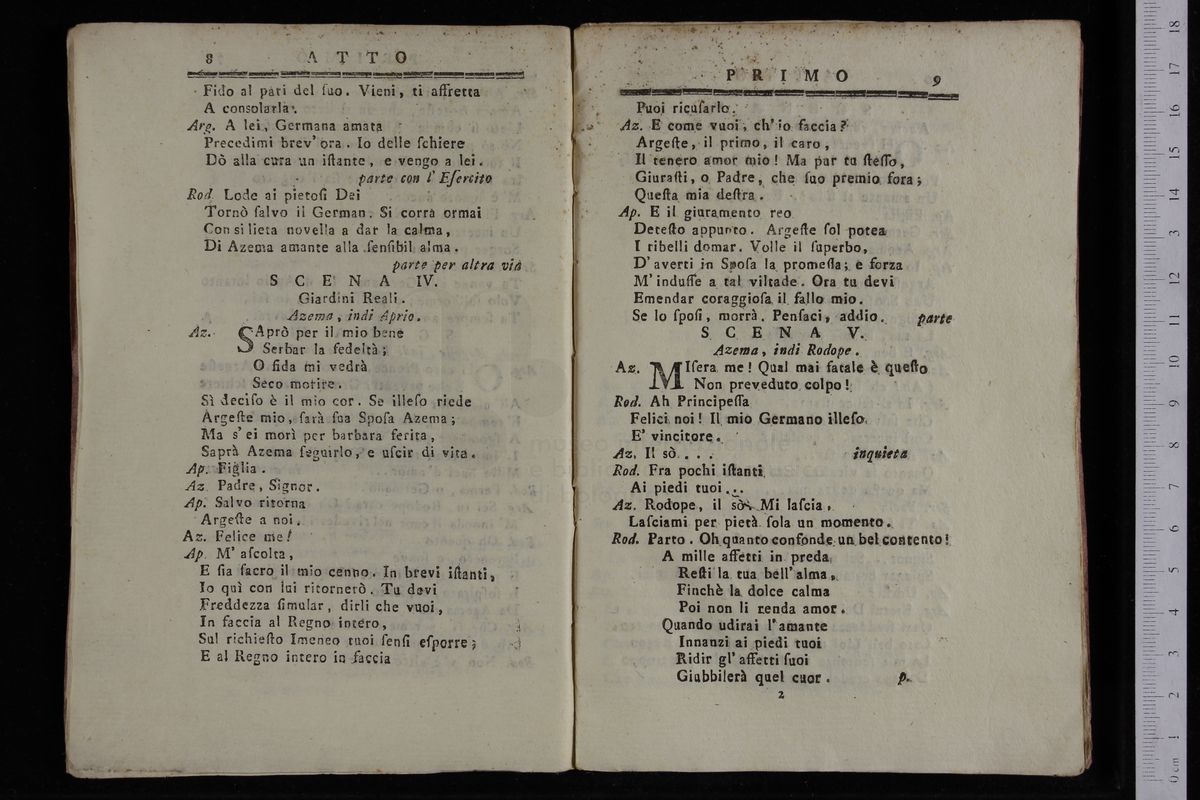 8 ATTO
Fido al pari del ſuo. Vieni, ti affretta
A conſolarla.
Arg. A lei, Germana amata
Precedimi brev' ora. Io delle ſchiere
Dò alla cura un iſtante, e vengo a lei.
parte con l' Eſercito
Rod. Lode ai pietoſi Dei
Tornò ſalvo il German. Si corra ormai
Con sì lieta novella a dar la calma,
Di Azema amante alla ſenſibil alma.
parte per altra via
SCENA IV.
Giardini Reali.
Azema, indi Aprio.
Az. SAprò per il mio bene
Serbar la fedeltà;
O fida mi vedrà
Seco morire.
Sì deciſo è il mio cor. Se illeſo riede
Argeſte mio, ſarà ſua Spoſa Azema;
Ma s' ei morì per barbara ferita,
Saprà Azema ſeguirlo, e uſcir di vita.
Ap. Figlia.
Az. Padre, Signor.
Ap. Salvo ritorna
Argeſte a noi.
Az. Felice me!
Ap. M' aſcolta,
E ſia ſacro il mio cenno. In brevi iſtanti,
Io quì con lui ritornerò. Tu devi
Freddezza ſimular, dirli che vuoi,
In faccia al Regno intero,
Sul richieſto Imeneo tuoi ſenſi eſporre;
E al Regno intero in faccia
PRIMO 9
Puoi ricuſarlo.
Az. E come vuoi, ch' io faccia?
Argeſte, il primo, il caro,
Il tenero amor mio! Ma pur tu ſteſſo,
Giuraſti, o Padre, che ſuo premio fora;
Queſta mia deſtra.
Ap. E il giuramento reo
Deteſto appunto. Argeſte ſol potea
I ribelli domar. Volle il ſuperbo,
D' averti in Spoſa la promeſſa; e forza
M' induſſe a tal viltade. Ora tu devi
Emendar coraggioſa il fallo mio.
Se lo ſpoſi, morrà. Penſaci, addio. parte
SCENA V.
Azema, indi Rodope.
Az. MIſera me! Qual mai fatale è queſto
Non preveduto colpo!
Rod. Ah Principeſſa
Felici noi! Il mio Germano illeſo
E' vincitore.
Az. Il sò.... inquieta
Rod. Fra pochi iſtanti
Ai piedi tuoi...
Az. Rodope, il sò. Mi laſcia,
Laſciami per pietà ſola un momento.
Rod. Parto. Oh quanto confonde un bel contento!
A mille affetti in preda
Reſti la tua bell' alma,
Finchè la dolce calma
Poi non li renda amor.
Quando udirai l' amante
Innanzi ai piedi tuoi
Ridir gl' affetti ſuoi
Giubbilerà quel cuor. p.
2
0 cm 1 2 3 4 5 6 7 8 9 10 11 12 13 14 15 16 17 18